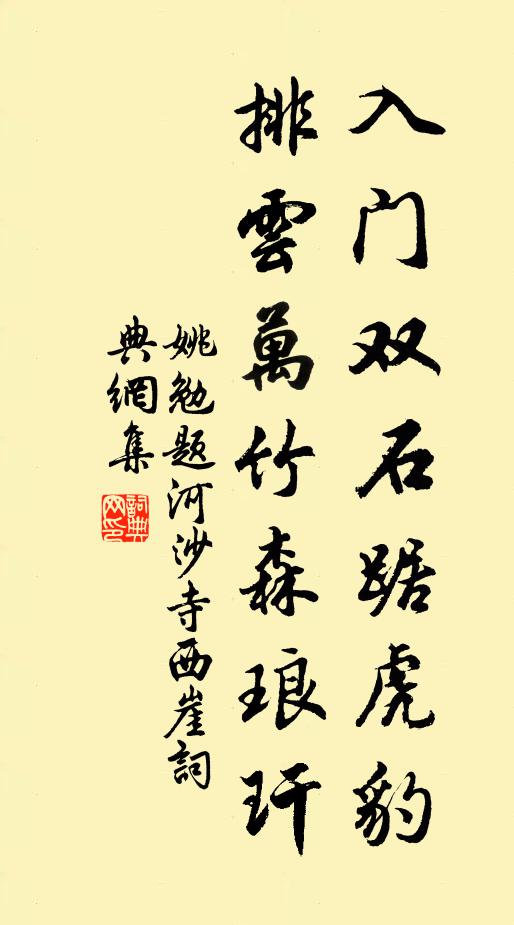 入门双石踞虎豹
排雲萬竹森琅玕
姚勉题河沙寺西崖詞
典網集
詞典网印